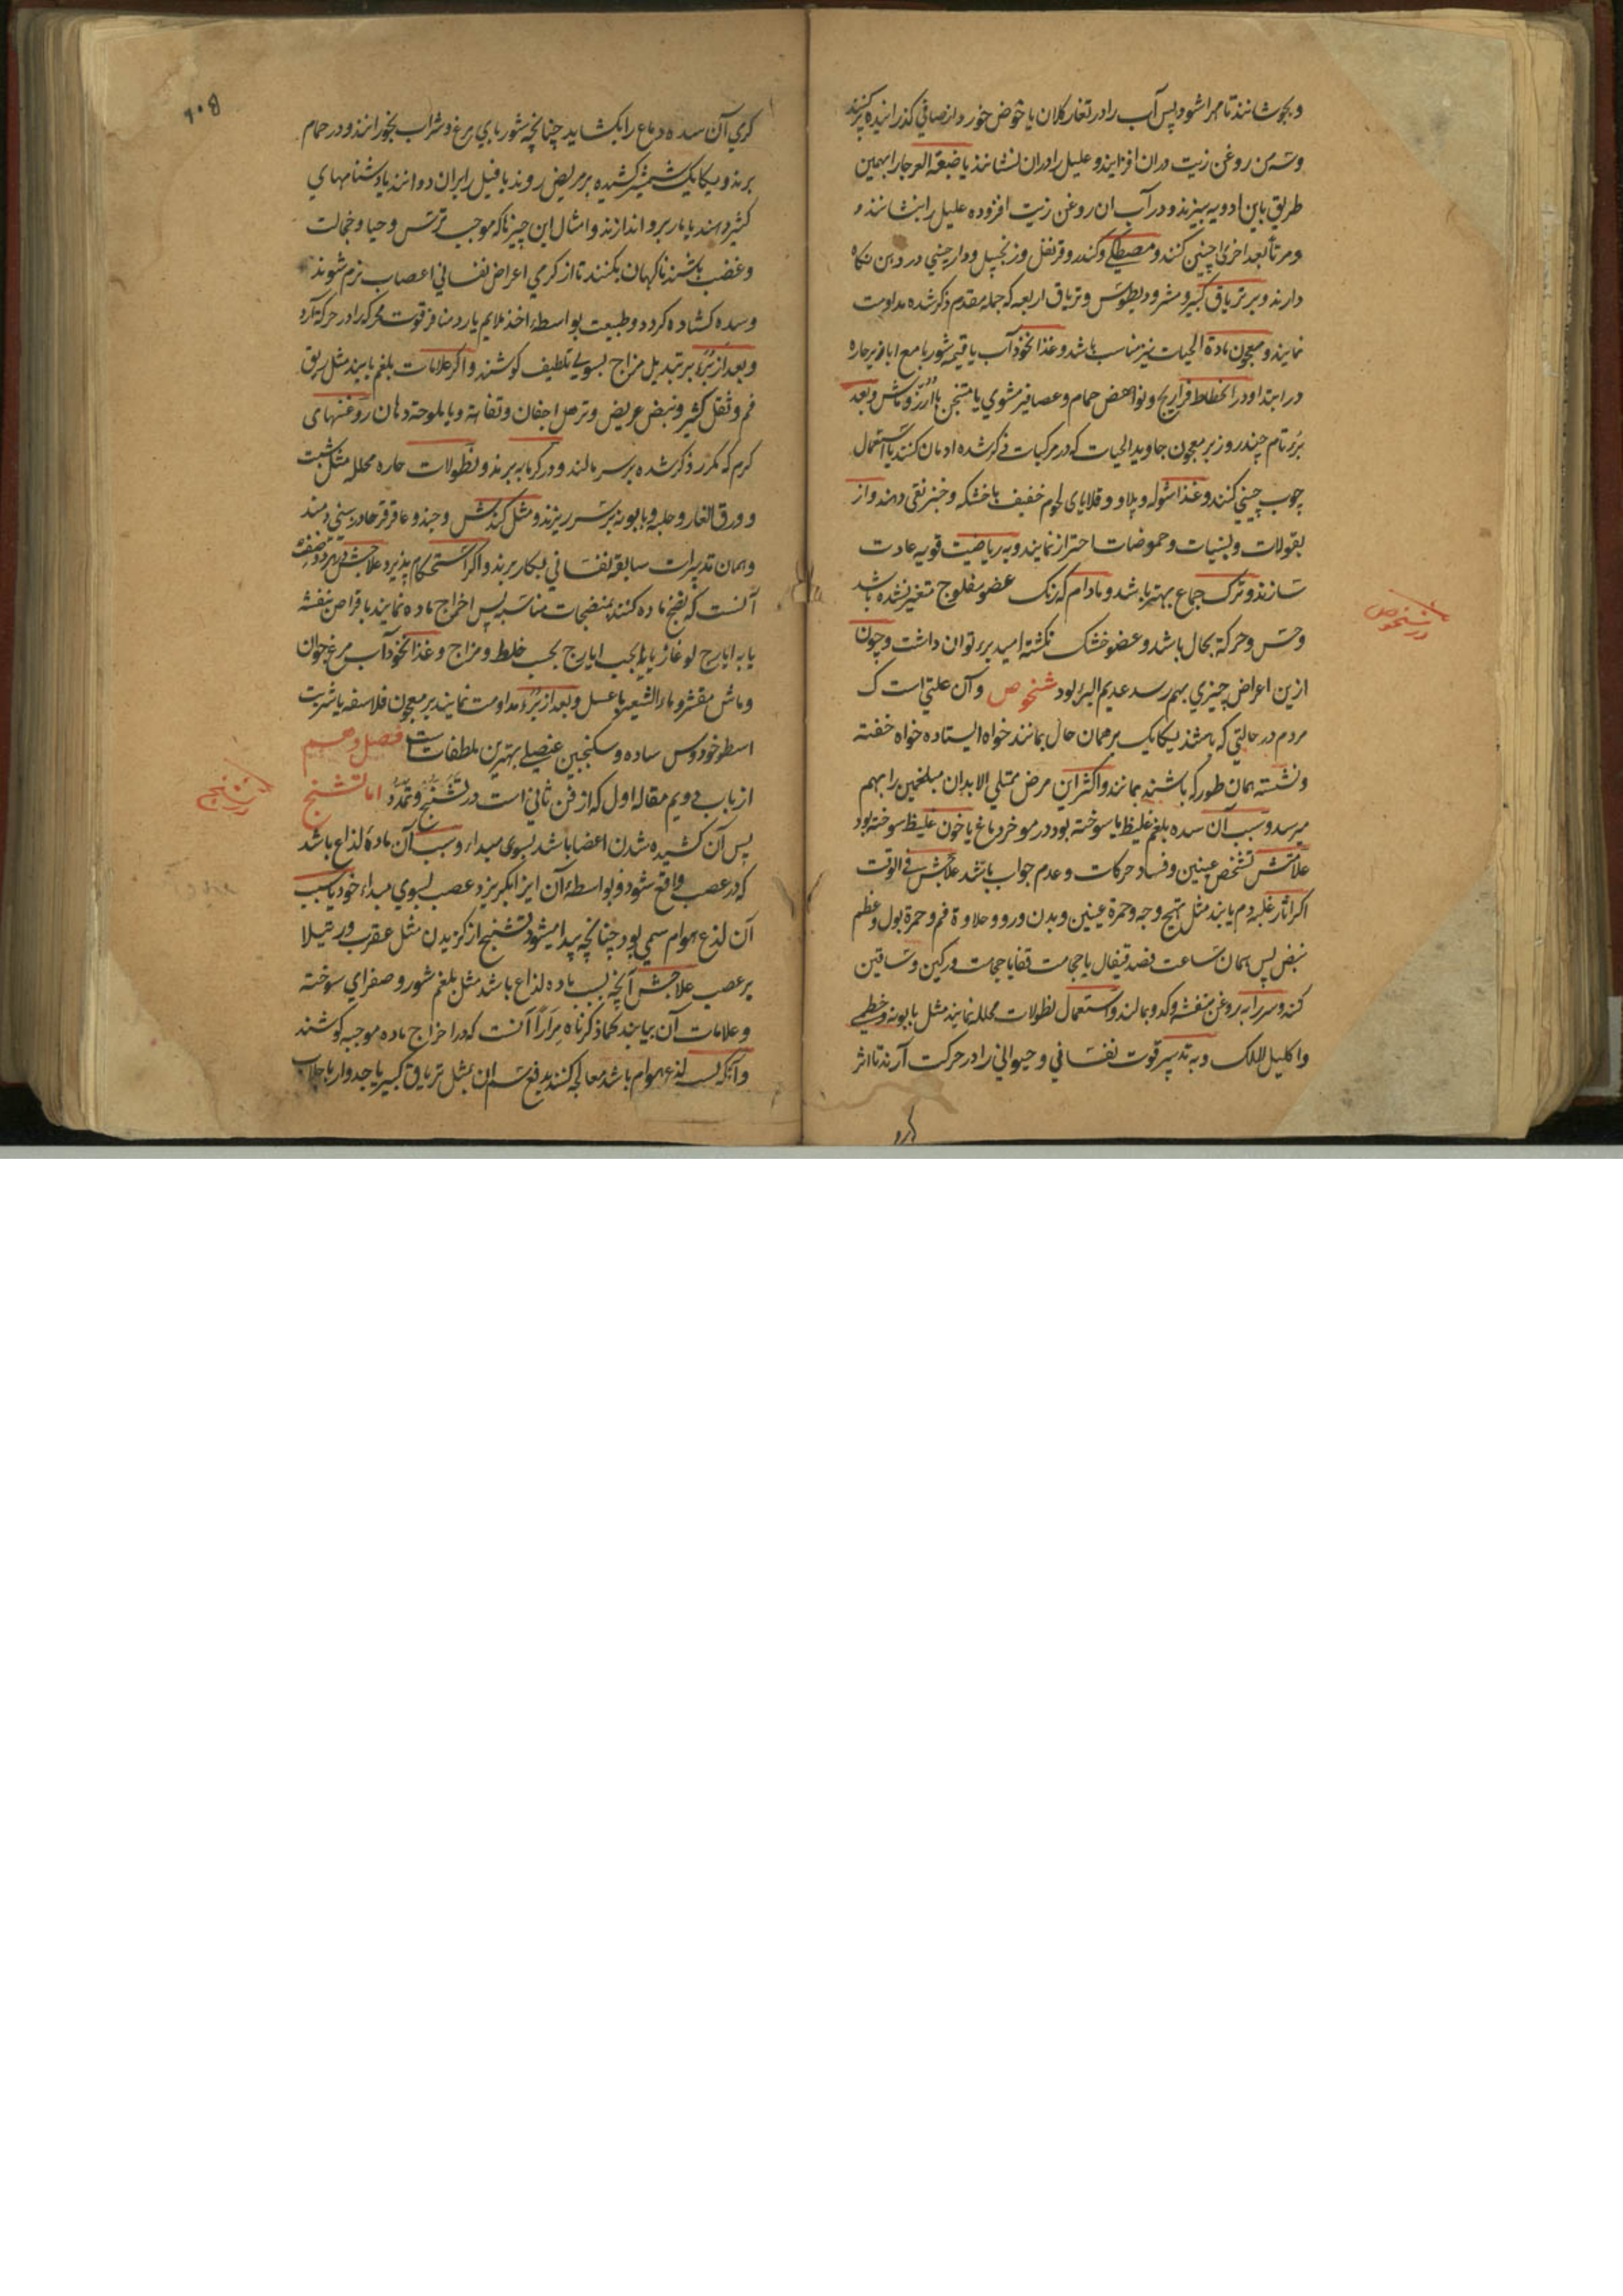 و بجوشانند تا مهرا شود پس آب را در تغار کلان یا حوض خورد از صافی گذرانیده پر کنند
و سه من روغن زیت دران افزایند و علیل را دران نشانند یا ضبعة العرجا را بهمین
طریق باین ادویه بپزند و در آب ان روغن زیت افزوده علیل را بنشانند و
و مرتاً بعد اخری چنین کنند و مصطکی و کندر و قرنفل و زنجبیل و دارچینی در دهن نگاه
دارند و بر تریاق کبیر و مثرودیطوس و تریاق اربعه که جمله مقدم ذکر شده مداومت
نمایند و معجون مادة الحیات نیز مناسب باشد و غذا نخود آب یا قیمه شوربا مع ابازیر حاره
در ابتدا و در انحطاط فراریج و نواهض حمام و عصافیر مشوی یا متنجن با ارز و ماش و بعد
برء تام چند روز بر معجون جاوید الحیات که در مرکبات ذکر شده ادمان کنند یا استعمال
چوب چینی کنند و غذا شوله و پلاو و قلایای لحوم خفیف با خشکه و خبز نقی دهند و از
بقولات و لبنیات و حموضات احتراز نمایند و به ریاضیت قویه عادت
سازند و ترک جماع بهتر باشد و مادام که رنگ عضو مفلوج متغیر نشده باشد
و حس و حرکة بحال باشد و عضو خشک نگشته امید برء توان داشت و چون
ازین اعراض چیزی بهم رسد عدیم البرء بود شخوص و آن علتی است ک
مردم در حالتی که باشند یکایک بر همان حال بمانند خواه ایستاده خواه خفته
و نشسته همان طور که باشند بمانند و اکثر این مرض ممتلی الابدان مبلغمین را بهم
میرسد و سبب آن سده بلغم غلیظ یا سوخته بود در موخر دماغ یا خون غلیظ سوخته بود
علامتش تشخص عینین و فساد حرکات و عدم جواب باشد علاجش فی الوقت
اکر اثار غلبه دم یابند مثل تهیج وجه و حمرة عینین و بدن و رو و حلاوة فم و حمرة بول و عظم
نبض پس همان ساعت فصد قیفال یا حجامت قفا یا حجامت ورکین و ساقین
کنند و سر را به روغن بنفشه و کدو بمالند و استعمال نطولات محلله نمایند مثل بابونه و خطمی
و اکلیل الملک و به تدبیر قوت نفسانی و حیوانی را در حرکت آرند تا اثر
در شخوص
۶۰۵
کرمی آن سده دماغ را بکشاید چنانچه شوربای مرغ و شراب بخورانند و در حمام
برند و یکایک شمشیر کشیده بر مریض روند یا فیل را بران دوانند یا دشنامهای
کثیر دهند یا مار برو اندازند و امثال این چیزها که موجب ترس و حیا و خجالت
و غضب باشند ناکهان بکنند تا از کرمی اعراض نفسانی اعصاب نرم شوند
و سده کشاده کردد و طبیعت بواسطه اخذ ملایم یا رد منافر قوت محرکه را در حرکة آرد
و بعد از برء بر تبدیل مزاج بسوی تلطیف کوشند و اکر علامات بلغم یابند مثل ریق
فم و ثقل کثیر و نبض عریض و ترهل اجفان و تفاهة و یا ملوحة دهان روغنهای
کرم که مکرر ذکر شده بر سر مالند و در کرمابه برند و نطولات حاره محلله مثل شبت
و ورق الغار و حلبه و بابونه بر سر ریزند و مثل کندش و جند و عاقرقرحا در بینی دمند
و همان تدبیرات سابقه نفسانی بکار برند و اکر استحکام پذیرد علاجش
آنست که نضج ماده کنند بمنضجات مناسب پس اخراج ماده نمایند باقراص بنفشه
یا به ایارج لوغازیا یا بحب ایارج بحسب خلط و مزاج و غذا نخود آب مرغ جوان
و ماش مقشر و ماء الشعیر با عسل و بعد از برء مداومت نمایند بر معجون فلاسفه یا شربت
اسطوخودوس ساده و سکنجبین عنصلی بهترین ملطفات است فصل دهم
از باب دویم مقاله اول که از فن ثانی است در تشنج و تمدد اما تشنج
پس آن کشیده شدن اعضا باشد بسوی مبداء و سبب آن ماده لذاع باشد
که در عصب واقع شود و بواسطه آن ایزا بگریزد عصب بسوی مبداء خود یا سبب
آن لذع هوام سمی بود چنانچه پیدا میشود تشنج از گزیدن مثل عقرب و رتیلا
بر عصب علاجش آنچه بسبب ماده لذاع باشد مثل بلغم شور و صفرای سوخته
و علامات آن بیابند کماذکرناه مراراً آنست که در اخراج ماده موجبه کوشند
و آنکه بسبب لذع هوام باشد معالجه کنند بدفع سم ان بمثل تریاق کبیر یا جدوار با جلاب
در تشنج